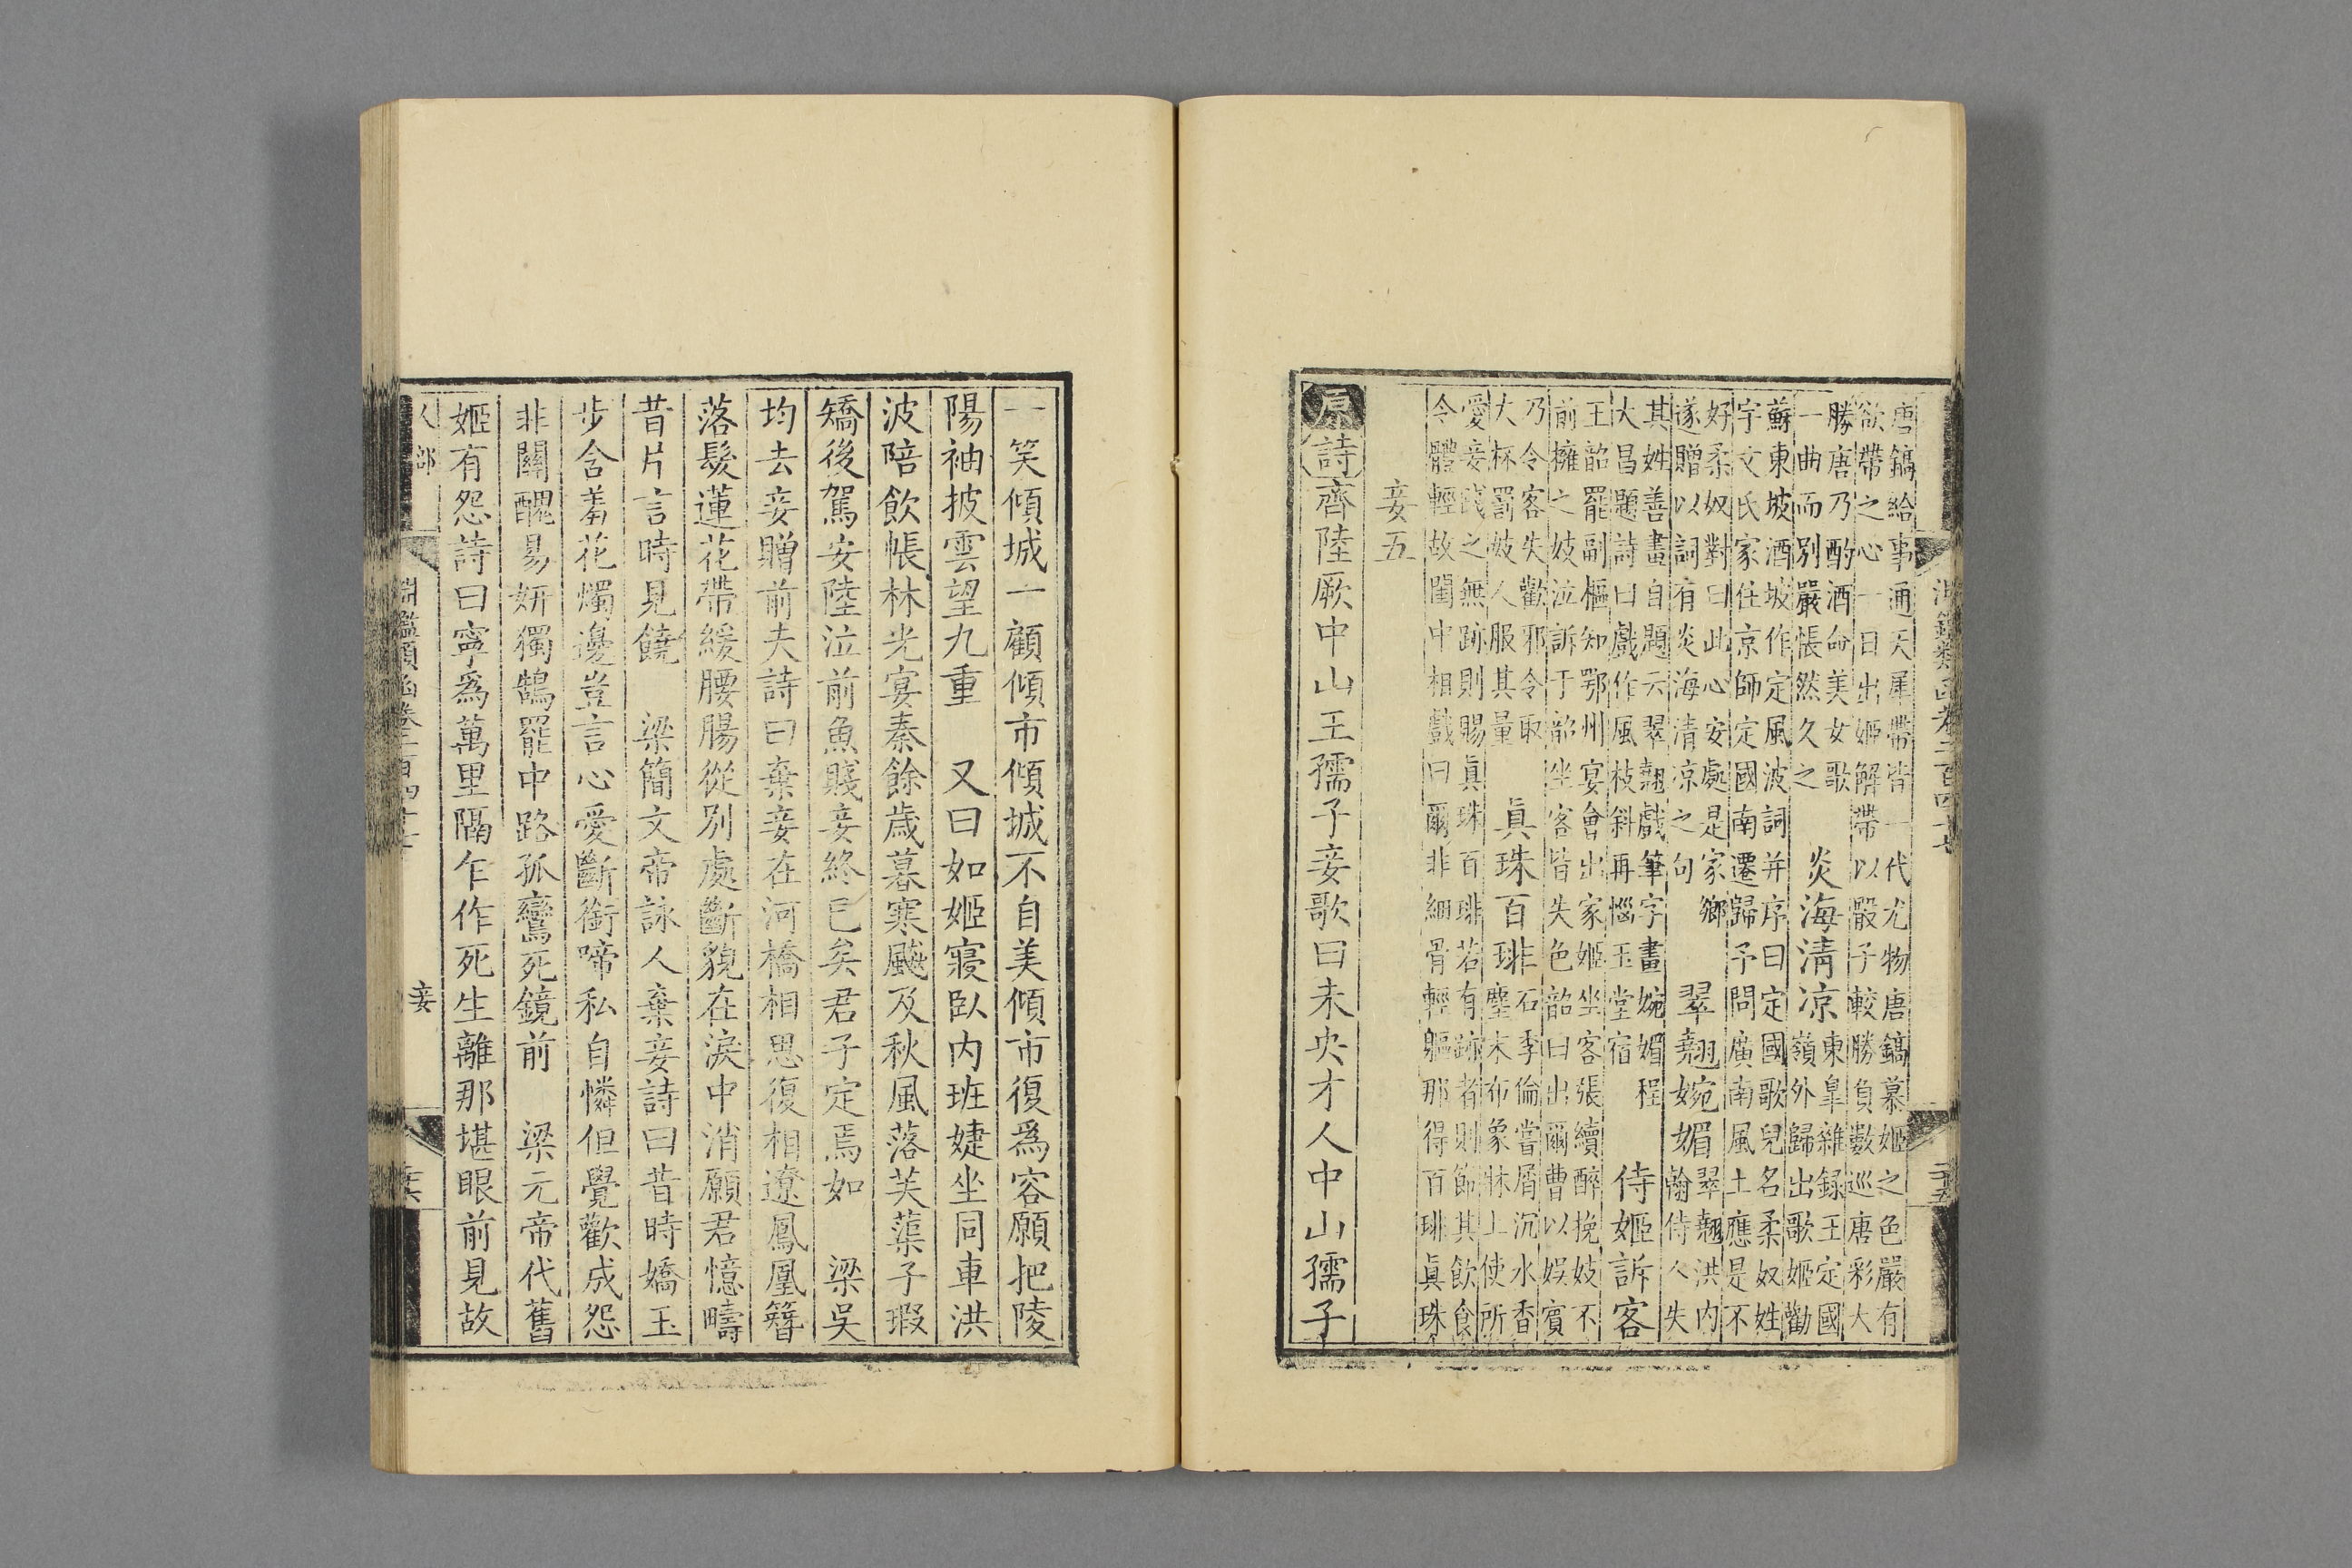 淵鑑類函卷二百四十七　二十五
唐鎬給事通天犀帶皆一代尤物唐鎬慕姬之色嚴有
欲帶之心一日出姬解帶以骰子較勝負數巡唐彩大
勝唐乃酌酒命美女歌
一曲而別嚴悵然久之
炎海淸凉
東皐雜録王定國
嶺外歸出歌姬勸
蘇東坡酒坡作定風波詞并序曰定國歌兒名柔奴姓
宇文氏家住京師定國南遷歸予問廣南風土應是不
好柔奴對曰此心安處是家鄉
遂贈以詞有炎海清凉之句
翠翹婉媚
翠翹洪内
翰侍人失
其姓善畫自題云翠翹戲筆字畫婉媚程
大昌題詩曰戲作風枝斜再惱玉堂宿
侍姬訴客
王韶罷副樞知鄂州宴會出家姬坐客張續醉挽妓不
前擁之妓泣訴于韶坐客皆失色韶曰出爾曹以娛賓
乃令客失歡邪令取
大杯罰妓人服其量
眞珠百琲
石季倫嘗屑沉水香
塵末布象牀上使所
愛妾踐之無跡則賜眞珠百琲若有跡者則節其飲食
令體輕故閨中相戲曰爾非細骨輕軀那得百琲眞珠
妾五
原詩齊陸厥中山王孺子妾歌曰未央才人中山孺子
一笑傾城一顧傾市傾城不自美傾市復爲容願把陵
陽袖披雲望九重　又曰如姬寢臥内班婕坐同車洪
波陪飲帳林光宴秦餘歲暮寒飈及秋風落芙蕖子瑕
矯後駕安陸泣前魚賤妾終已矣君子定焉如　梁吳
均去妾贈前夫詩曰棄妾在河橋相思復相遼鳳凰簪
落髮蓮花帶緩腰腸從別處斷貌在淚中消願君憶疇
昔片言時見饒　梁簡文帝詠人棄妾詩曰昔時嬌玉
步含羞花燭邊豈言心愛斷銜啼私自憐但覺歡成怨
非關醜易妍獨鵠罷中路孤鸞死鏡前　梁元帝代舊
姬有怨詩曰寧爲萬里隔乍作死生離那堪眼前見故
人部　淵鑑類函卷二百四十七　妾　二十六